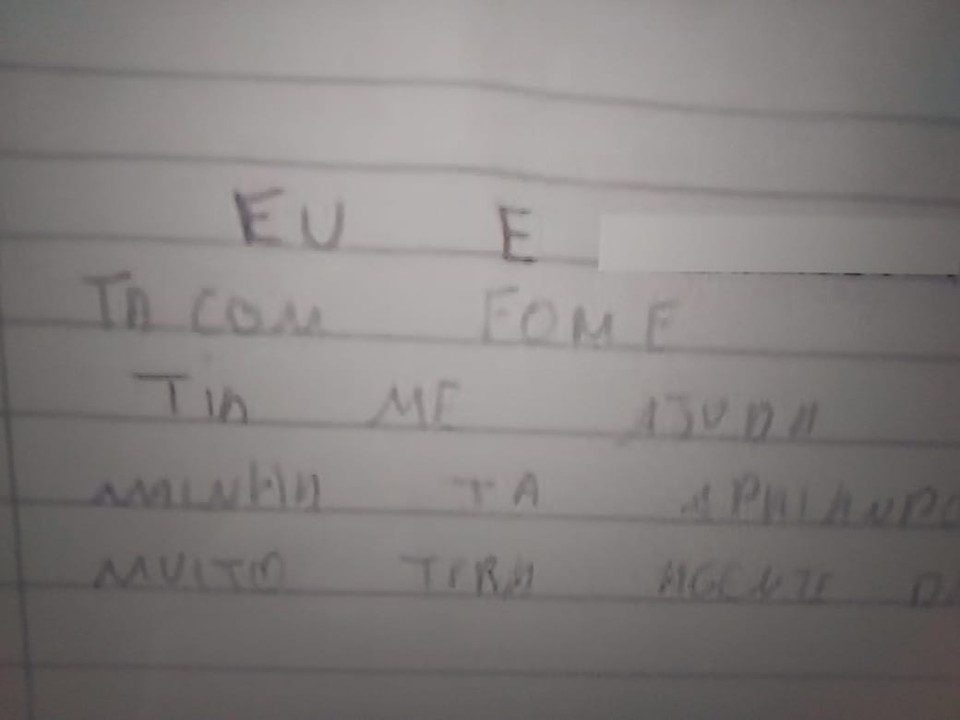 EU E
TA COM FOME
TIA ME AJUDA
AMINHA TA APHIANDO
MUITO TERA AGENTE